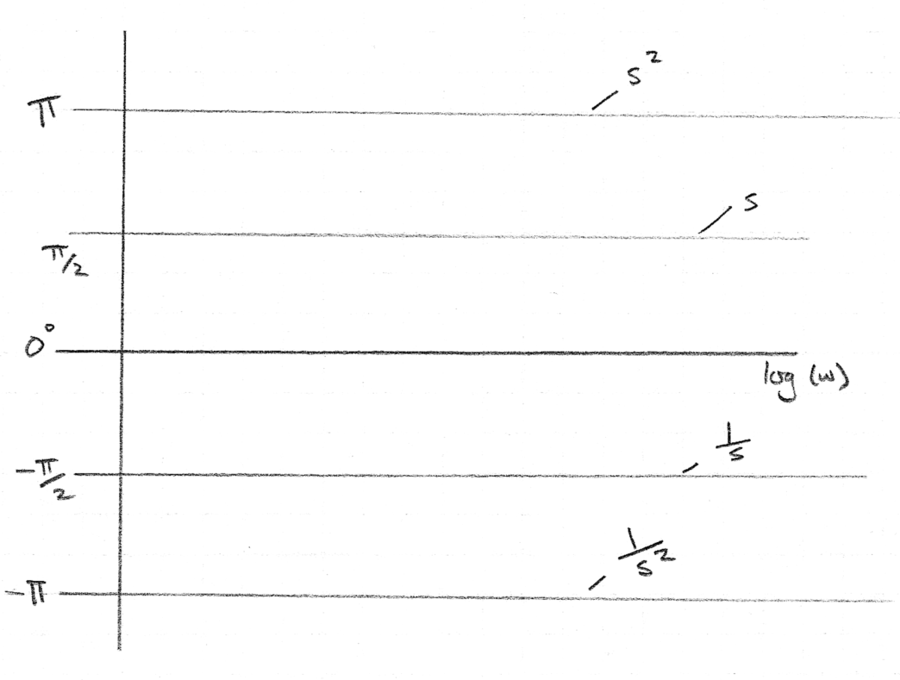 π
s²
π/2
s
0°
log (w)
-π/2
1/s
-π
1/s²